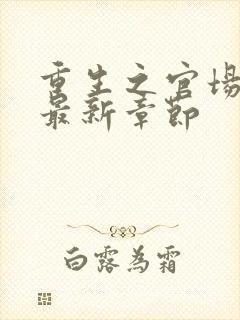 重生之官场
最新章节
白露為霜